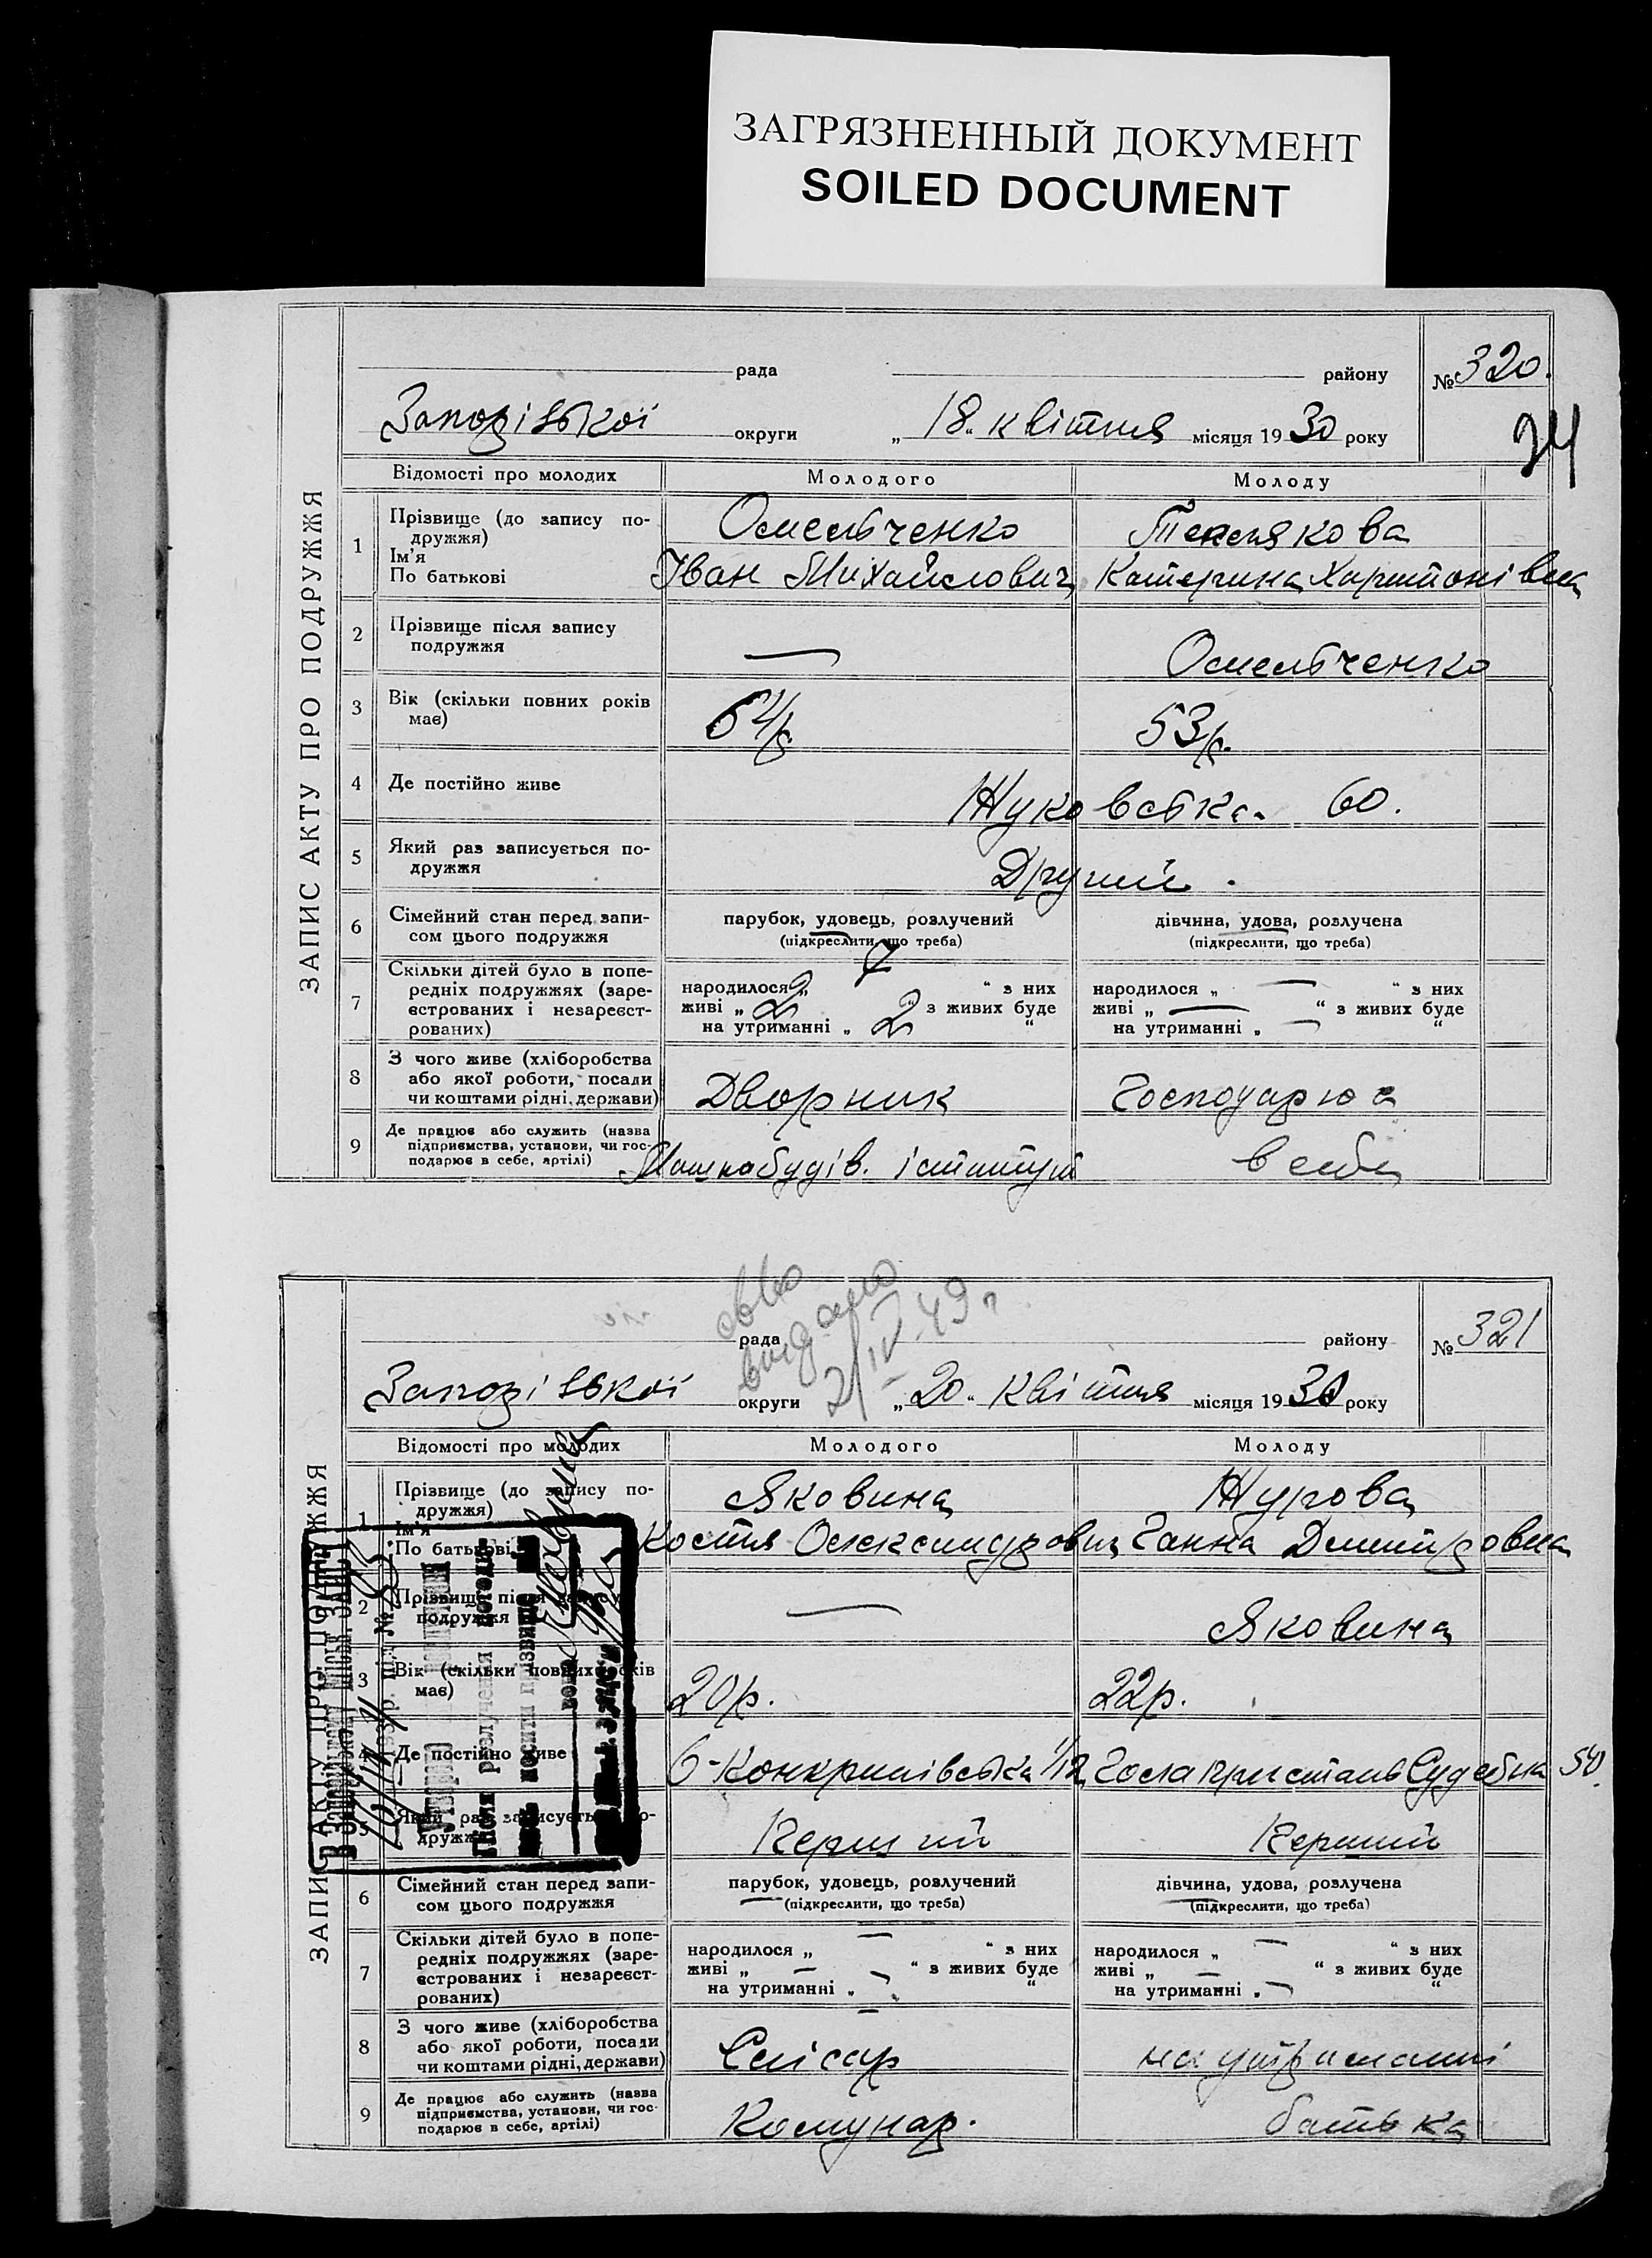 ЗАГРЯЗНЕННЫЙ ДОКУМЕНТ
SOILED DOCUMENT
ЗАПИС АКТУ ПРО ПОДРУЖЖЯ
рада району № 320.
Запорізької округи „ 18 „ квітня місяця 1930 року
24
Відомості про молодих Молодого Молоду
1 Прізвище (до запису по-
дружжя)
Ім'я
По батькові
Омельченко
Іван Михайлович
Теслякова
Катерина Харитонівна
2 Прізвище після запису
подружжя
— Омельченко
3 Вік (скільки повних років
має)
64 р. 53 р.
4 Де постійно живе Жуковська 60.
5 Який раз записується по-
дружжя
Другий.
6 Сімейний стан перед запи-
сом цього подружжя
парубок, удовець, розлучений
(підкреслити, що треба)
дівчина, удова, розлучена
(підкреслити, що треба)
7 Скільки дітей було в попе-
редніх подружжях (заре-
єстрованих і незареєст-
рованих)
народилося „ “ з них
живі „ 2 “ з живих буде
на утриманні „ 2 “
народилося „ — “ з них
живі „ — “ з живих буде
на утриманні „ — “
8 З чого живе (хліборобства
або якої роботи, посади
чи коштами рідні, держави)
Дворник Господарює
9 Де працює або служить (назва
підприємства, установи, чи гос-
подарює в себе, артілі)
Машнобудів. інститут в себе
видано
21/IV 49 г
ЗАПИС АКТУ ПРО ПОДРУЖЖЯ
рада району № 321
Запорізької округи „ 20 „ квітня місяця 1930 року
Відомості про молодих Молодого Молоду
1 Прізвище (до запису по-
дружжя)
Ім'я
По батькові
Яковина
Костя Олександрович
Журова
Ганна Дмитровна
2 Прізвище після запису
подружжя
— Яковина
3 Вік (скільки повних років
має)
20 р. 22 р.
4 Де постійно живе
5 Який раз записується по-
дружжя
Перший Перший
6 Сімейний стан перед запи-
сом цього подружжя
парубок, удовець, розлучений
(підкреслити, що треба)
дівчина, удова, розлучена
(підкреслити, що треба)
7 Скільки дітей було в попе-
редніх подружжях (заре-
єстрованих і незареєст-
рованих)
народилося „ — “ з них
живі „ — “ з живих буде
на утриманні „ — “
народилося „ — “ з них
живі „ — “ з живих буде
на утриманні „ — “
8 З чого живе (хліборобства
або якої роботи, посади
чи коштами рідні, держави)
Слісар на утриманні
9 Де працює або служить (назва
підприємства, установи, чи гос-
подарює в себе, артілі)
Комунар. батька